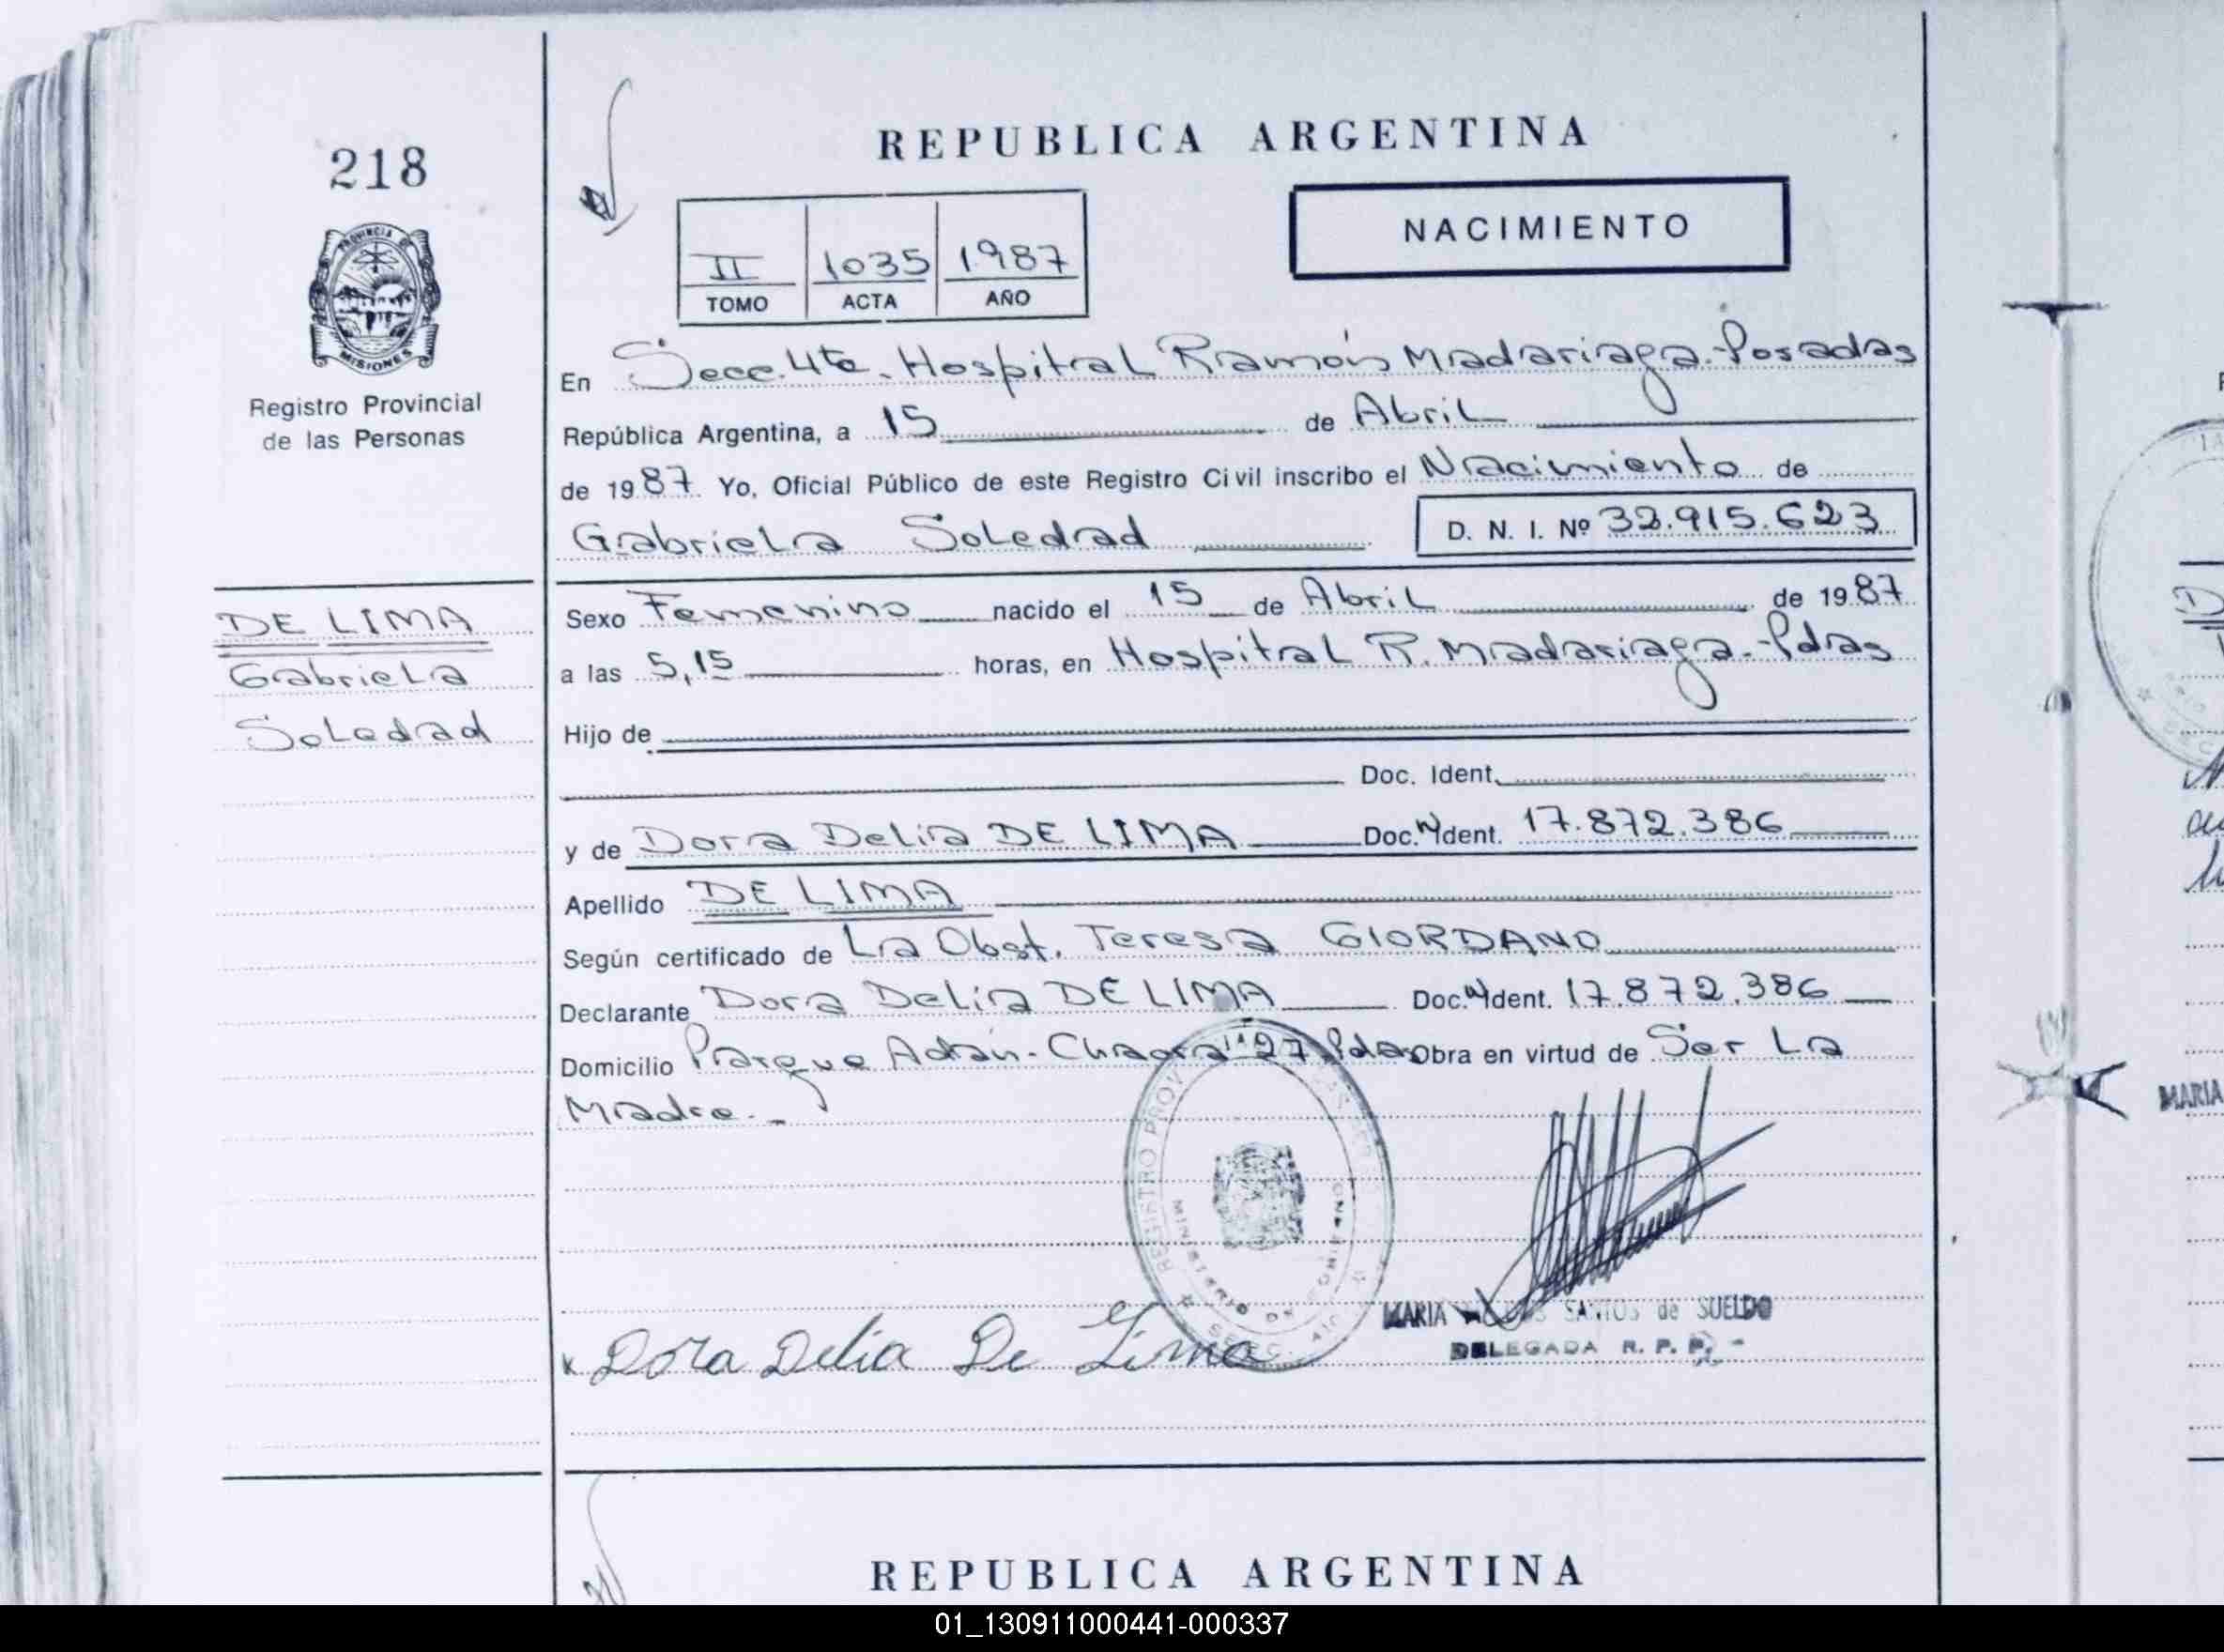 218
PROVINCIA DE
MISIONES
Registro Provincial
de las Personas
DE LIMA
Gabriela
Soledad
REPUBLICA ARGENTINA
II 1035 1987
TOMO ACTA AÑO
NACIMIENTO
En Secc. 4ta. Hospital Ramón Madariaga.-Posadas
República Argentina, a 15 de Abril
de 1987. Yo, Oficial Público de este Registro Civil inscribo el Nacimiento de
Gabriela Soledad D. N. I. Nº 32.915.623
Sexo Femenino nacido el 15 de Abril de 1987
a las 5,15 horas, en Hospital R. Madariaga.-Pdas
Hijo de
Doc. Ident.
y de Dora Delia DE LIMA Doc. Ident. 17.872.386
Apellido DE LIMA
Según certificado de La Obst. Teresa GIORDANO
Declarante Dora Delia DE LIMA Doc. Ident. 17.872.386
Domicilio Parque Adán.- Chacra 27 Pdas Obra en virtud de Ser La
Madre.-
REGISTRO PROV
MINISTERIO DE
Dora Delia De Lima
MARIA SANTOS de SUELDO
DELEGADA R. P. P.
REPUBLICA ARGENTINA
MARIA
01_130911000441-000337